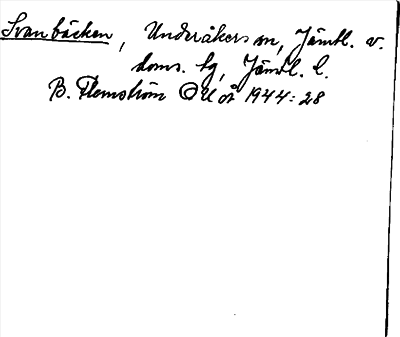 Svanbäcken, Undersåkers sn, Jämtl. v.
doms. tg, Jämtl. l.
B. Flemström OUÅ 1944:28